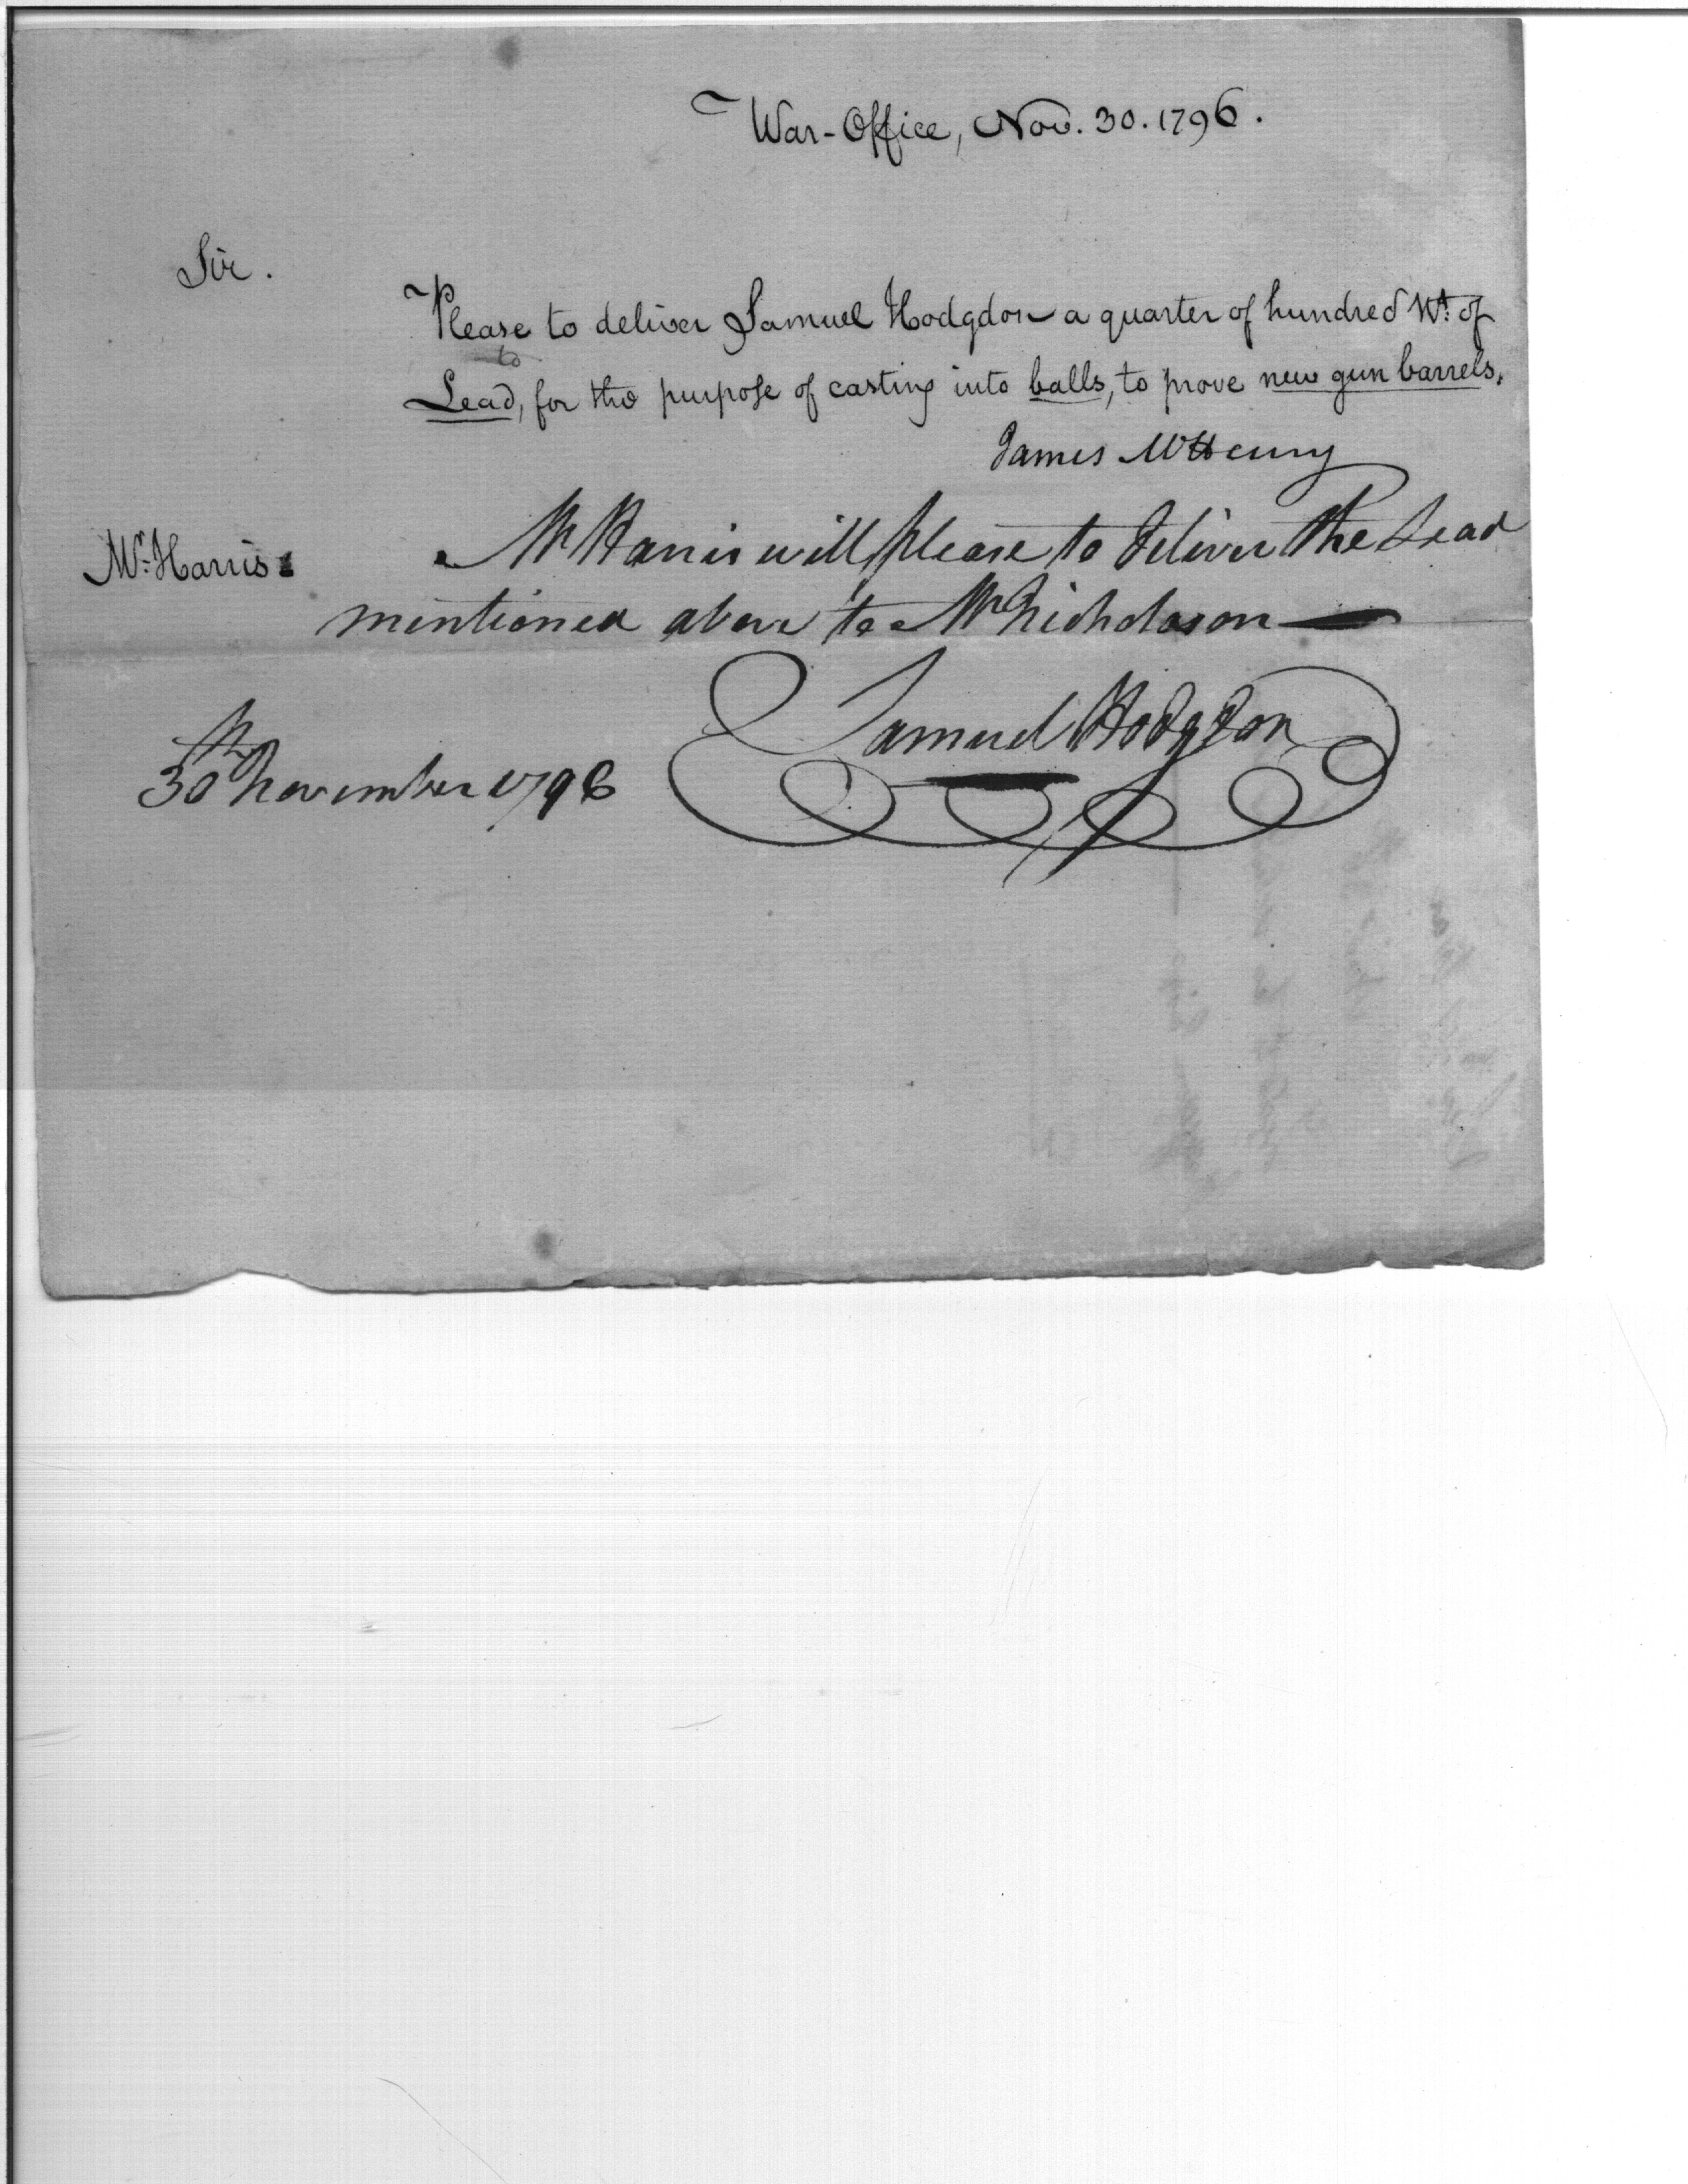 War-Office, Nov. 30. 1796.
Sir.
Please to deliver Samuel Hodgdon a quarter of hundred Wt. of
to
Lead, for the purpose of casting into balls, to prove new gun barrels.
James McHenry
Mr. Harris
Mr Harris will please to deliver the Lead
mentioned above to Mr Nicholason
Samuel Hodgdon
30th November 1796